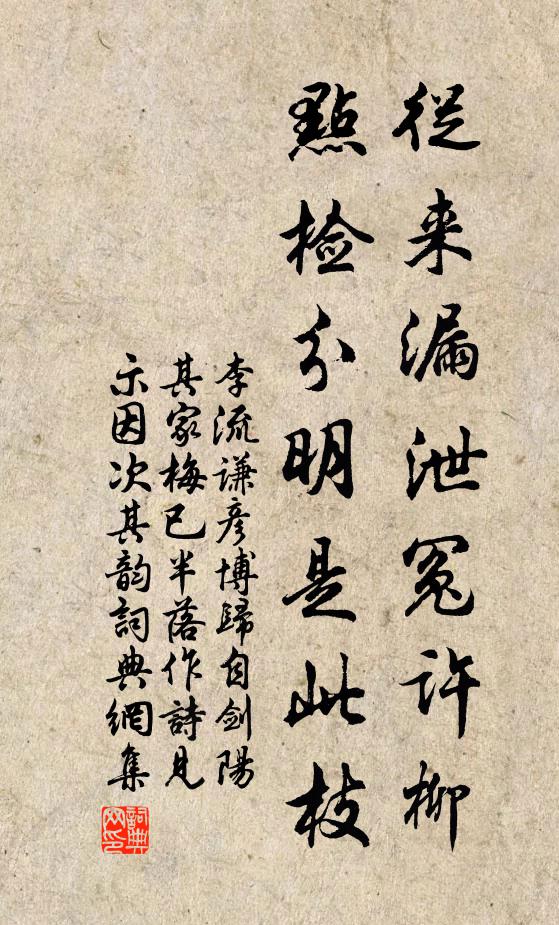 從来漏泄冤許柳
點检分明是此枝
李流謙彦博歸自剑陽
其家梅已半落作詩见
示因次其韵詞典網集
詞典
网印